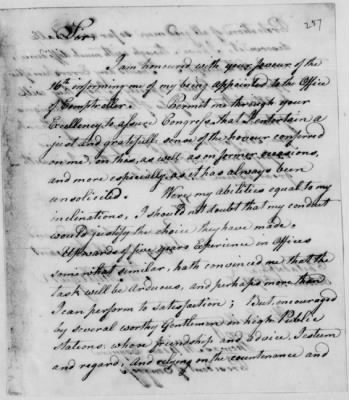 257
Sir
I am honoured with your favour of the
16th informing me of my being appointed to the Office
of Comptroller. Permit me through your
Excellency to assure Congress, that I entertain a
just and gratefull sense of the honour conferred
on me, on this, as well as on former occasions,
and more especially, as it has always been
unsolicited. Were my abilities equal to my
inclinations, I should not doubt that my conduct
would justify the choice they have made.
Upwards of five years experience in Offices
somewhat similar, hath convinced me that the
task will be Arduous, and perhaps more than
I can perform to satisfaction; But encouraged
by several worthy Gentlemen in high Public
Stations whose friendship and advice I esteem
and regard; and relying on the countenance and